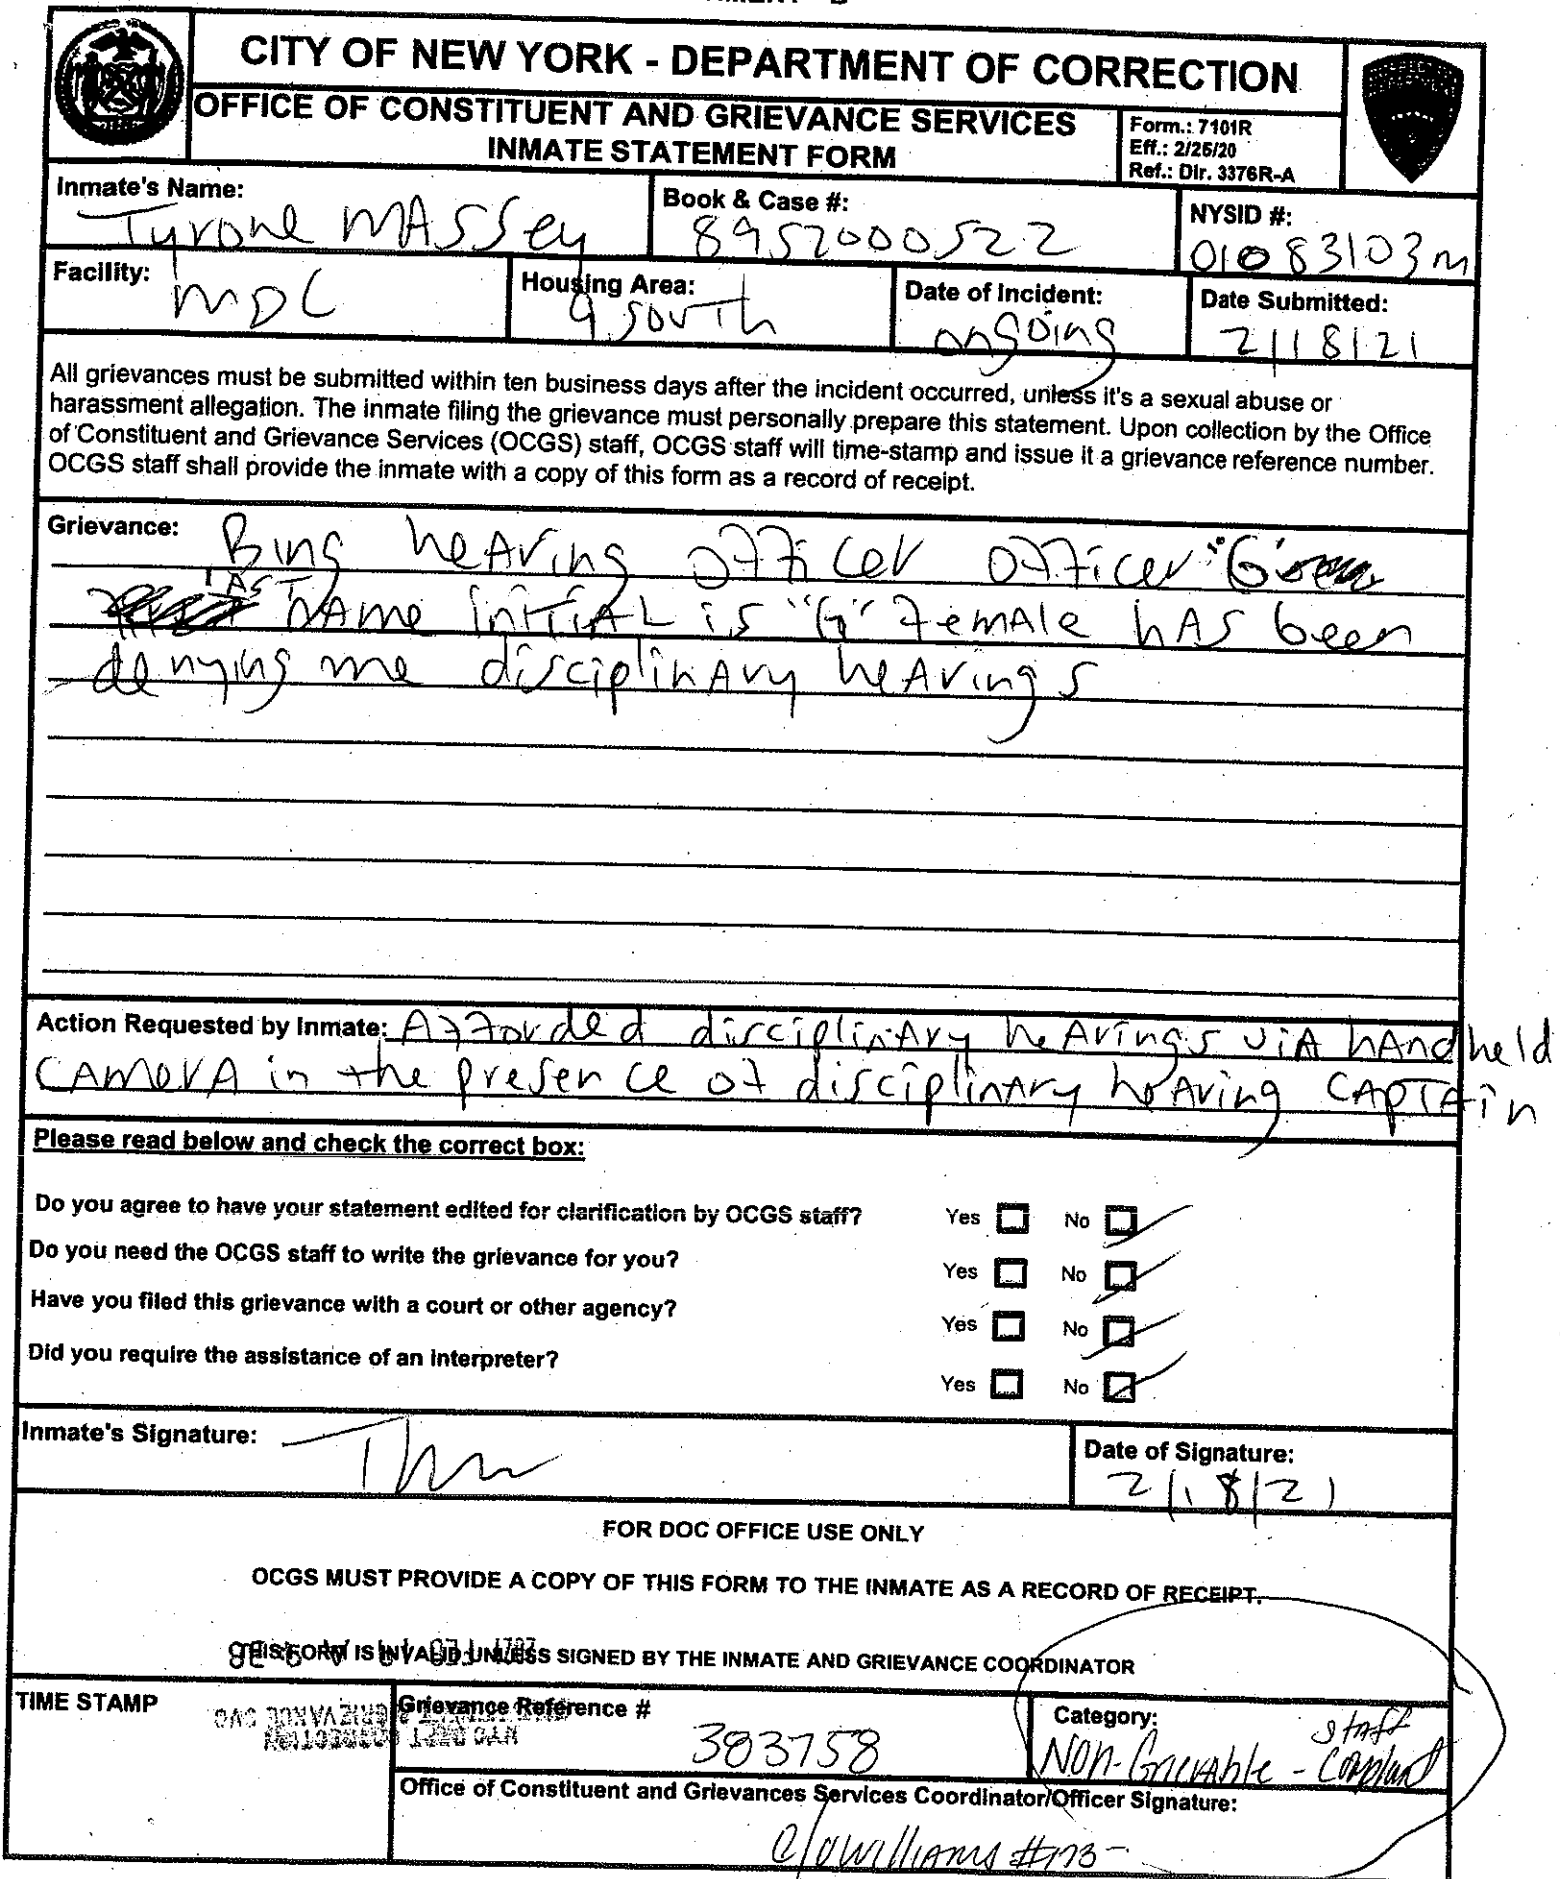 CITY OF NEW YORK - DEPARTMENT OF CORRECTION
OFFICE OF CONSTITUENT AND GRIEVANCE SERVICES
INMATE STATEMENT FORM
Form.: 7101R
Eff.: 2/25/20
Ref.: Dir. 3376R-A
Inmate's Name:
Tyrone MASSey
Book & Case #:
8952000522
NYSID #:
01083103m
Facility:
MDC
Housing Area:
9 south
Date of Incident:
ongoing
Date Submitted:
2/18/21
All grievances must be submitted within ten business days after the incident occurred, unless it's a sexual abuse or
harassment allegation. The inmate filing the grievance must personally prepare this statement. Upon collection by the Office
of Constituent and Grievance Services (OCGS) staff, OCGS staff will time-stamp and issue it a grievance reference number.
OCGS staff shall provide the inmate with a copy of this form as a record of receipt.
Grievance: Bing heAring officer officer "G"
lAST nAme initiAL is "G" FemAle hAS been
denying me disciplinAry heArings
Action Requested by Inmate: Afforded disciplinAry heArings viA hAndheld
CAmerA in the presence of disciplinAry heAring CApTAin
Please read below and check the correct box:
Do you agree to have your statement edited for clarification by OCGS staff? Yes No
Do you need the OCGS staff to write the grievance for you? Yes No
Have you filed this grievance with a court or other agency? Yes No
Did you require the assistance of an interpreter? Yes No
Inmate's Signature:
Date of Signature:
2/18/21
FOR DOC OFFICE USE ONLY
OCGS MUST PROVIDE A COPY OF THIS FORM TO THE INMATE AS A RECORD OF RECEIPT.
THIS FORM IS INVALID UNLESS SIGNED BY THE INMATE AND GRIEVANCE COORDINATOR
TIME STAMP
Grievance Reference #
383758
Category: staff
Non-Grievable - Complaint
Office of Constituent and Grievances Services Coordinator/Officer Signature:
C/O Williams #173-